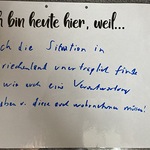 ch bin heute hier, weil...
ch die Situation in
riechenland unerträglich finde
wir auch eine Verantwortung
aben u. diese auch wahrnehmen müssen!